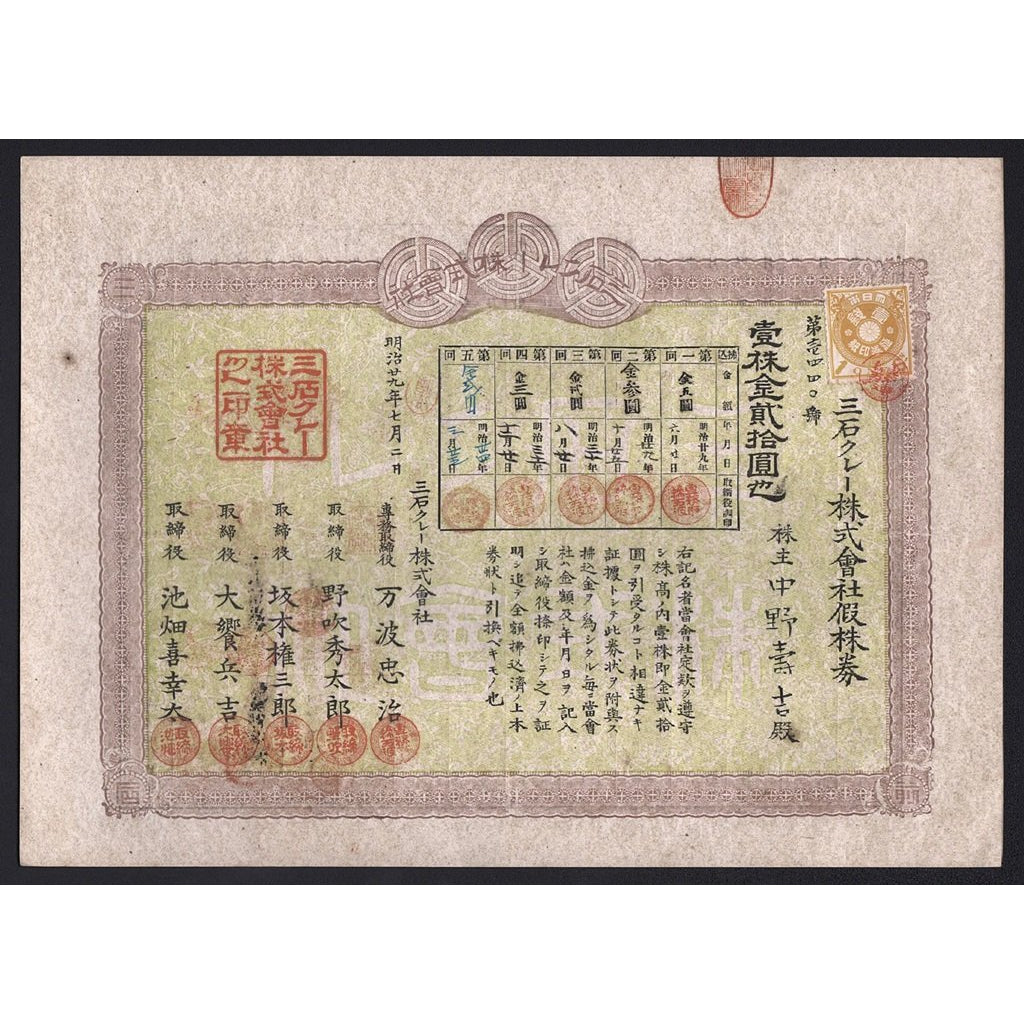 三石クレー株式會社
第壱四四〇號
三石クレー株式會社假株券
壹株金貳拾圓也
株主中野壽吉殿
拂込
金額
年月日
取締役調印
第一回
金五圓
明治廿九年
六月廿日
第二回
金参圓
明治廿九年
第三回
金貳圓
明治三十年
八月廿日
第四回
金三圓
明治三十年
第五回
金貳圓
明治卅四年
右記名者當會社定欵ヲ遵守
シ株高ノ内壹株即金貳拾
圓ヲ引受タルコト相違ナキ
証據トシテ此券状ヲ附與ス
拂込金ヲ爲シタル毎ニ當會
社ハ金額及ヒ年月日ヲ記入
シ取締役捺印シテ之ヲ証
明シ追テ金額拂込濟ノ上本
券状ト引換ベキモノ也
明治廿九年七月二日
三石クレー株式會社
專務取締役 万波忠治
取締役 野吹秀太郎
取締役 坂本権三郎
取締役 大饗兵吉
取締役 池畑喜幸太
三石クレー
株式會社
之印章